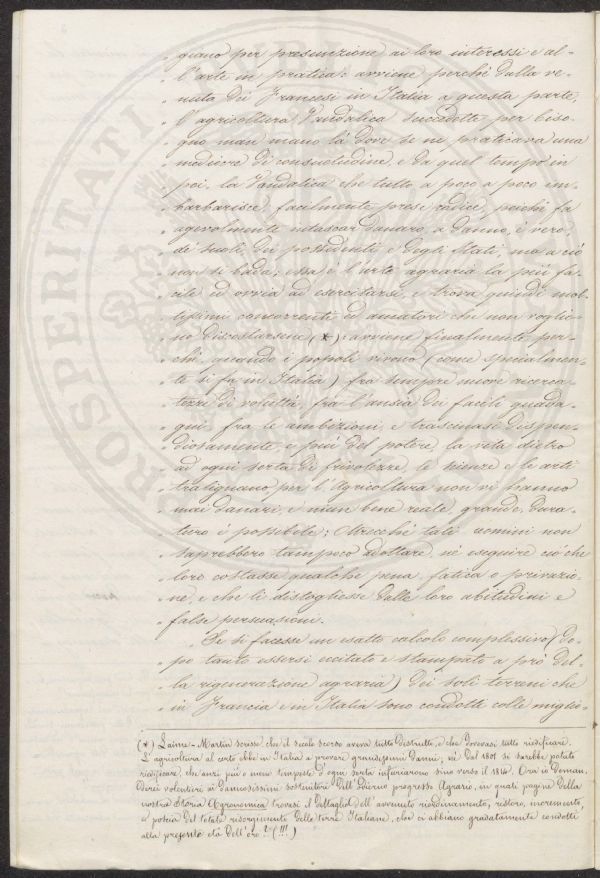 " guano per presunzione ai loro interessi e al-
" l'arte in pratica: avviene perchè dalla ve-
" nuta dei Francesi in Italia a questa parte,
" l'agricoltura Vandalica succedette per biso-
" gno man mano là dove se ne praticava una
" mediocre di consuetudine, e da quel tempo in
" poi, la Vandalica che tutto a poco a poco im-
" barbarisce, facilmente prese radice, poichè fa
" agevolmente intascar danaro, a danno, è vero,
" de' suoli dei possidenti e degli Stati, ma a ciò
" non si bada; essa è l'arte agraria la più fa-
" cile ed ovvia ad esercitarsi, e trova quindi mol-
" tissimi concorrenti ed amatori che non voglio-
" no discostarsene (*): avviene finalmente per-
" chè, quando i popoli vivono (come specialmen-
" te si fa in Italia) fra sempre nuove ricerca-
" tezze di voluttà, fra l'ansia da facili guada-
" gni, fra le ambizioni, e trascinasi dispen-
" diosamente, e più del potere, la vita dietro
" ad ogni sorta di frivolezze, le scienze e le arti
" tralignano, per l'Agricoltura non vi hanno
" mai danari, e niun bene reale, grande, dura-
" turo è possibile; Avvechè tali uomini non
" saprebbero tampoco adottare, nè eseguire ciò che
" loro costasse qualche pena, fatica o privazio-
" ne, e che li distogliesse dalle loro abitudini e
" false persuasioni.
" Se si facesse un esatto calcolo complessivo (do-
" po tanto essersi eccitato e stampato a prò del-
" la rigenerazione agraria) dei soli terreni che
" in Francia e in Italia sono condotti colle miglio-
(*) Laime-Martin scrisse che il secolo scorso aveva tutto distrutto, e che dovevasi tutto riedificare.
L'agricoltura al certo ebbe in Italia a provare grandissimi danni; nè dal 1801 si sarebbe potuto
riedificare, chè anzi più o meno tempeste d'ogni sorta infuriarono sino verso il 1814. Ora io doman-
derei volentieri ai animosissimi sostenitori dell'odierno progresso Agrario, in quali pagine della
nostra Storia Agronomica trovasi il dettaglio dell'avvenuto riordinamento, restoro, incremento,
e poscia del totale risorgimento delle terre Italiane, che ci abbiano gradatamente condotti
alla presente età dell'oro? (!!!)
PROSPERITATI